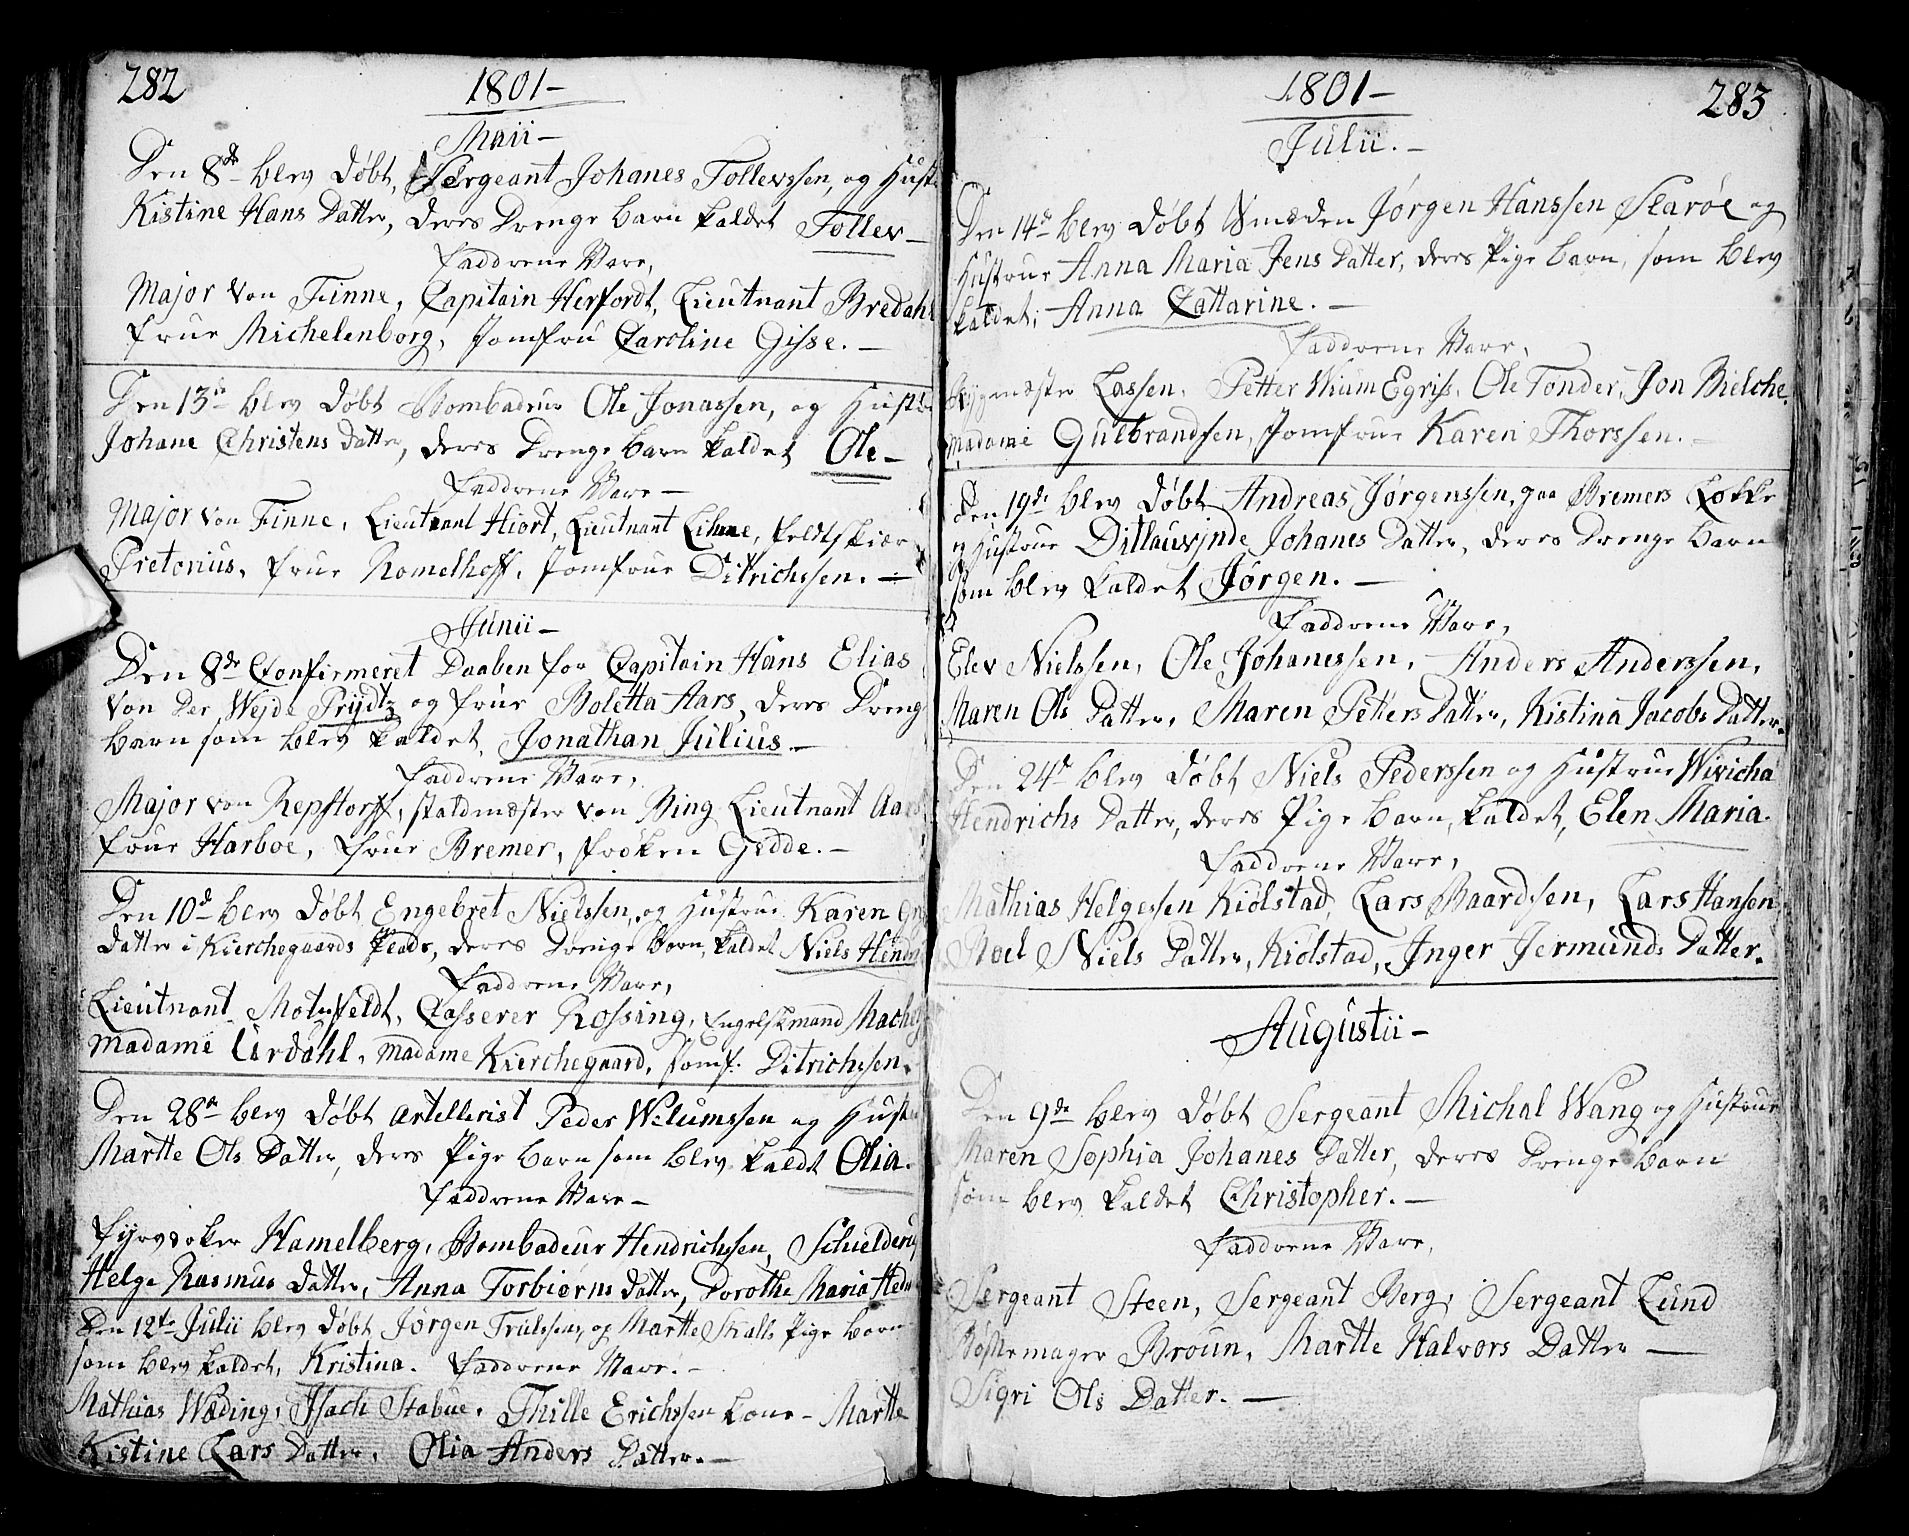 282
1801 –
Maii –
Den 8de blev døbt, Sergeant Johanes Tollevssen, og Hust
Kistine Hans Datter, deres Drenge barn kaldet Tollev –
Faddrene Vare,
Major von Finne, Capitain Herfordt, Lieutnant Bredahl
frue Michelenborg, Jomfru Caroline Gisse. –
Den 13de blev døbt Bombadeur Ole Jonassen, og Hust
Johane Christens Datter, deres Drenge barn kaldet Ole –
Faddrene Vare –
Major von Finne, Lieutnant Hiort, Lieutnant feldtskiær
Pretorius, frue Romelhoff, Jomfrue Ditrichssen. –
Junii –
Den 8de Confirmeret Daaben for Capitain Hans Elias
von der Wejde Prydtz og frue Boletta Aars, deres Dreng
barn som blev kaldet, Jonathan Julius –
Faddrene Vare,
Major von Repstorff, staldmæster von Bing Lieutnant Aars
frue Harboe, frue Bremer, frøken Gedde. –
Den 10d blev døbt Engebret Nielssen, og Hustrue Karen
Datter i Kierchegaards Plads, deres Drenge barn, kaldet Niels Henri
Faddrene Vare,
Lieutnant Motzfeldt, Casserer Rossing, Engelskmand
Madame Urdahl, Madame Kierchegaard, Jomf: Ditrichssen.
Den 28de blev døbt Artellerist Peder Wilumssen og Hust
Martte Ols Datter, deres Pige barn som blev kaldt Olia.
Faddrene Vare –
Fyrværker Hamelberg, Bombadeur Hendrichssen, Schielderup
Helge Rasmus Datter, Anna Torbiørns Datter, Dorothe Maria
Den 12te Julii blev døbt Jørgen Trulssens, og Martte Skalls Pige barn
som blev kaldet, Kristina. Faddrene Vare. –
Mathias Wæding, Isach Stabue, Thille Erichssen kone – Martte
Kistine Lars Datter, Olia Anders Datter. –
1801 –
283
Julii. –
Den 14de blev døbt Smæden Jørgen Hanssen Skarøe og
Hustrue Anna Maria Jens Datter, deres Pige barn, som blev
kaldet; Anna Cattarine. –
Faddrene Vare,
Lassen, Petter Wium Egriss, Ole Tonder, Jon Bielche
Madame Gulbrandsen, Jomfrue Karen Thorssen. –
Den 19de blev døbt Andreas Jørgenssen, paa Bremers Løkke
og Hustrue Ditlauvinde Johanes Datter, deres Drenge barn
som blev kaldet Jørgen. –
Faddrene Vare,
Elev Nielssen, Ole Johanessen, Anders Anderssen,
Maren Ols Datter, Maren Petters Datter, Kistina Jacobs Datter.
Den 24de blev døbt Niels Pederssen og Hustrue Wivicha
Hendrichs Datter, deres Pige barn, kaldet, Elen Maria.
Faddrene Vare,
Mathias Helgessen Kiølstad, Lars Baardssen, Lars Hansen
Roel Niels Datter, Kiølstad, Inger Jermunds Datter.
Augustii –
Den 9de blev døbt Sergeant Michal Wang og Hustrue
Maren Sophia Johanes Datter, deres Drenge barn
som blev kaldet Christopher. –
Faddrene Vare,
Sergeant Steen, Sergeant Berg, Sergeant Lund
Bøssemager Broun, Martte Halvors Datter –
Sigri Ols Datter. –